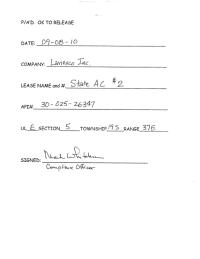 P/A'D. OK TO RELEASE
DATE: 09-08-10
COMPANY: Lanexco Inc.
LEASE NAME and #: State AC #2
API# 30-025-26347
UL E SECTION 5 TOWNSHIP RANGE 37E
SIGNED:
Compliance Officer